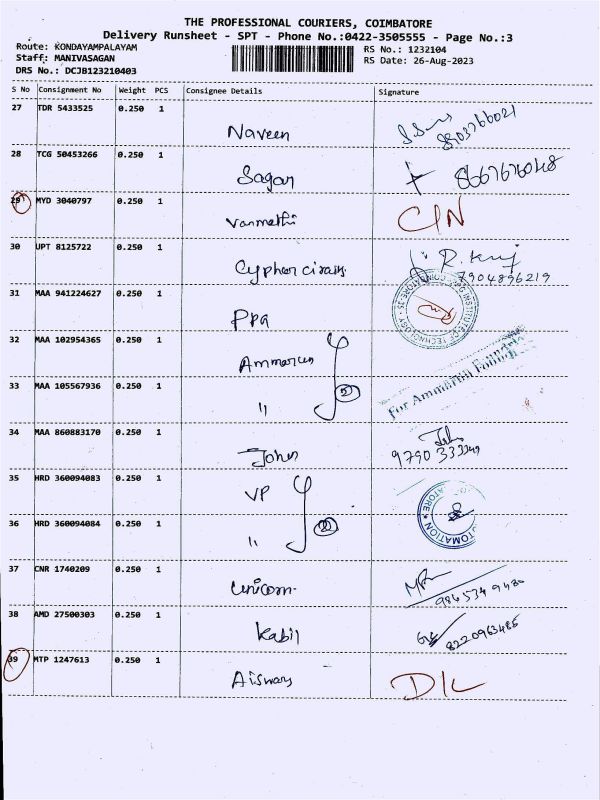 THE PROFESSIONAL COURIERS, COIMBATORE
Delivery Runsheet - SPT - Phone No.:0422-3505555 - Page No.:3
Route: KONDAYAMPALAYAM RS No.: 1232104
Staff: MANIVASAGAN RS Date: 26-Aug-2023
DRS No.: DCJB123210403
S No Consignment No Weight PCS Consignee Details Signature
27 TDR 5433525 0.250 1
Naveen
28 TCG 50453266 0.250 1
Sagan
29 MYD 3040797 0.250 1
Vanmathi C/N
30 UPT 8125722 0.250 1
7904896219
31 MAA 941224627 0.250 1
PPG
32 MAA 102954365 0.250 1
33 MAA 105567936 0.250 1
" 2
For Ammarun
34 MAA 860883170 0.250 1
John 9790 333349
35 HRD 360094083 0.250 1
VP
36 HRD 360094084 0.250 1
" 2
37 CNR 1740209 0.250 1
Unicorn
38 AMD 27500303 0.250 1
Kabil 8220963485
39 MTP 1247613 0.250 1
D/L